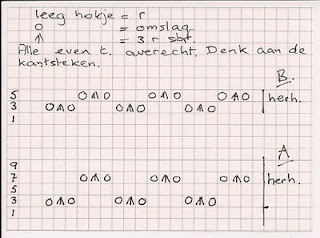 leeg hokje = r
O = omslag
↑ = 3 r sbt.
Alle even t. averecht. Denk aan de
kantsteken.
B.
5 O ʌ O O ʌ O O ʌ O herh.
3 O ʌ O O ʌ O O ʌ O
1
A
9
7 O ʌ O O ʌ O O ʌ O herh.
5
3 O ʌ O O ʌ O O ʌ O
1